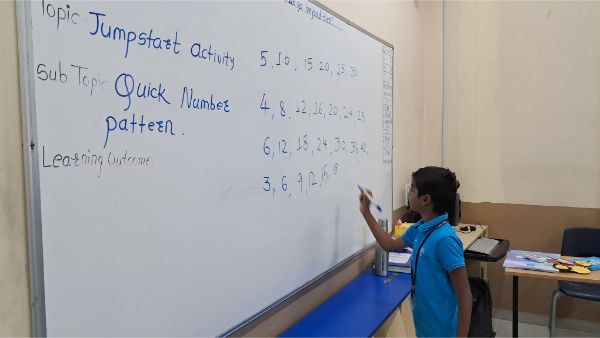 Topic: Jumpstart Activity
Sub Topic Quick Number
pattern.
Learning Outcome.
5, 10, 15, 20, 25, 30
4, 8, 12, 16, 20, 24, 28
6, 12, 18, 24, 30, 36, 42
3, 6, 9, 12, 15, 18